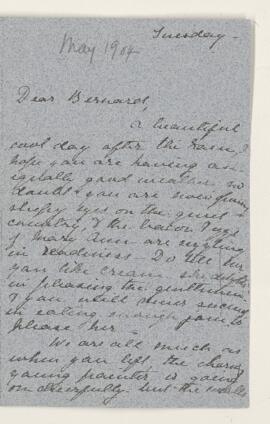 Tuesday -
May 1904
Dear Bernard,
a beautiful
cool day after the rain, I
hope you are having an
equally good weather, no
doubt you are now
sleepy eyes on the quiet
country, & the bacon & eggs
of Mary Ann are
in readiness. Do tell her
you like cream she delights
in pleasing the gentlemen
& you will never succeed
in eating enough for to
please her -
We are all much as
when you left the
young painter is going
on cheerfully but the